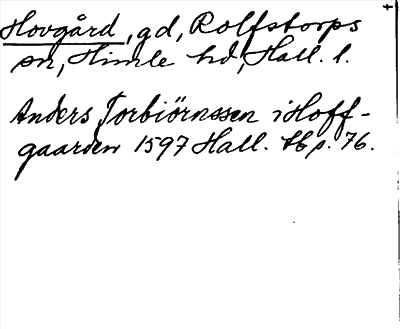 Hovgård, gd, Rolfstorps
sn, Himle hd, Hall. l.
Anders Torbiörnssen i Hoff-
gaarden 1597 Hall. tb s. 76.